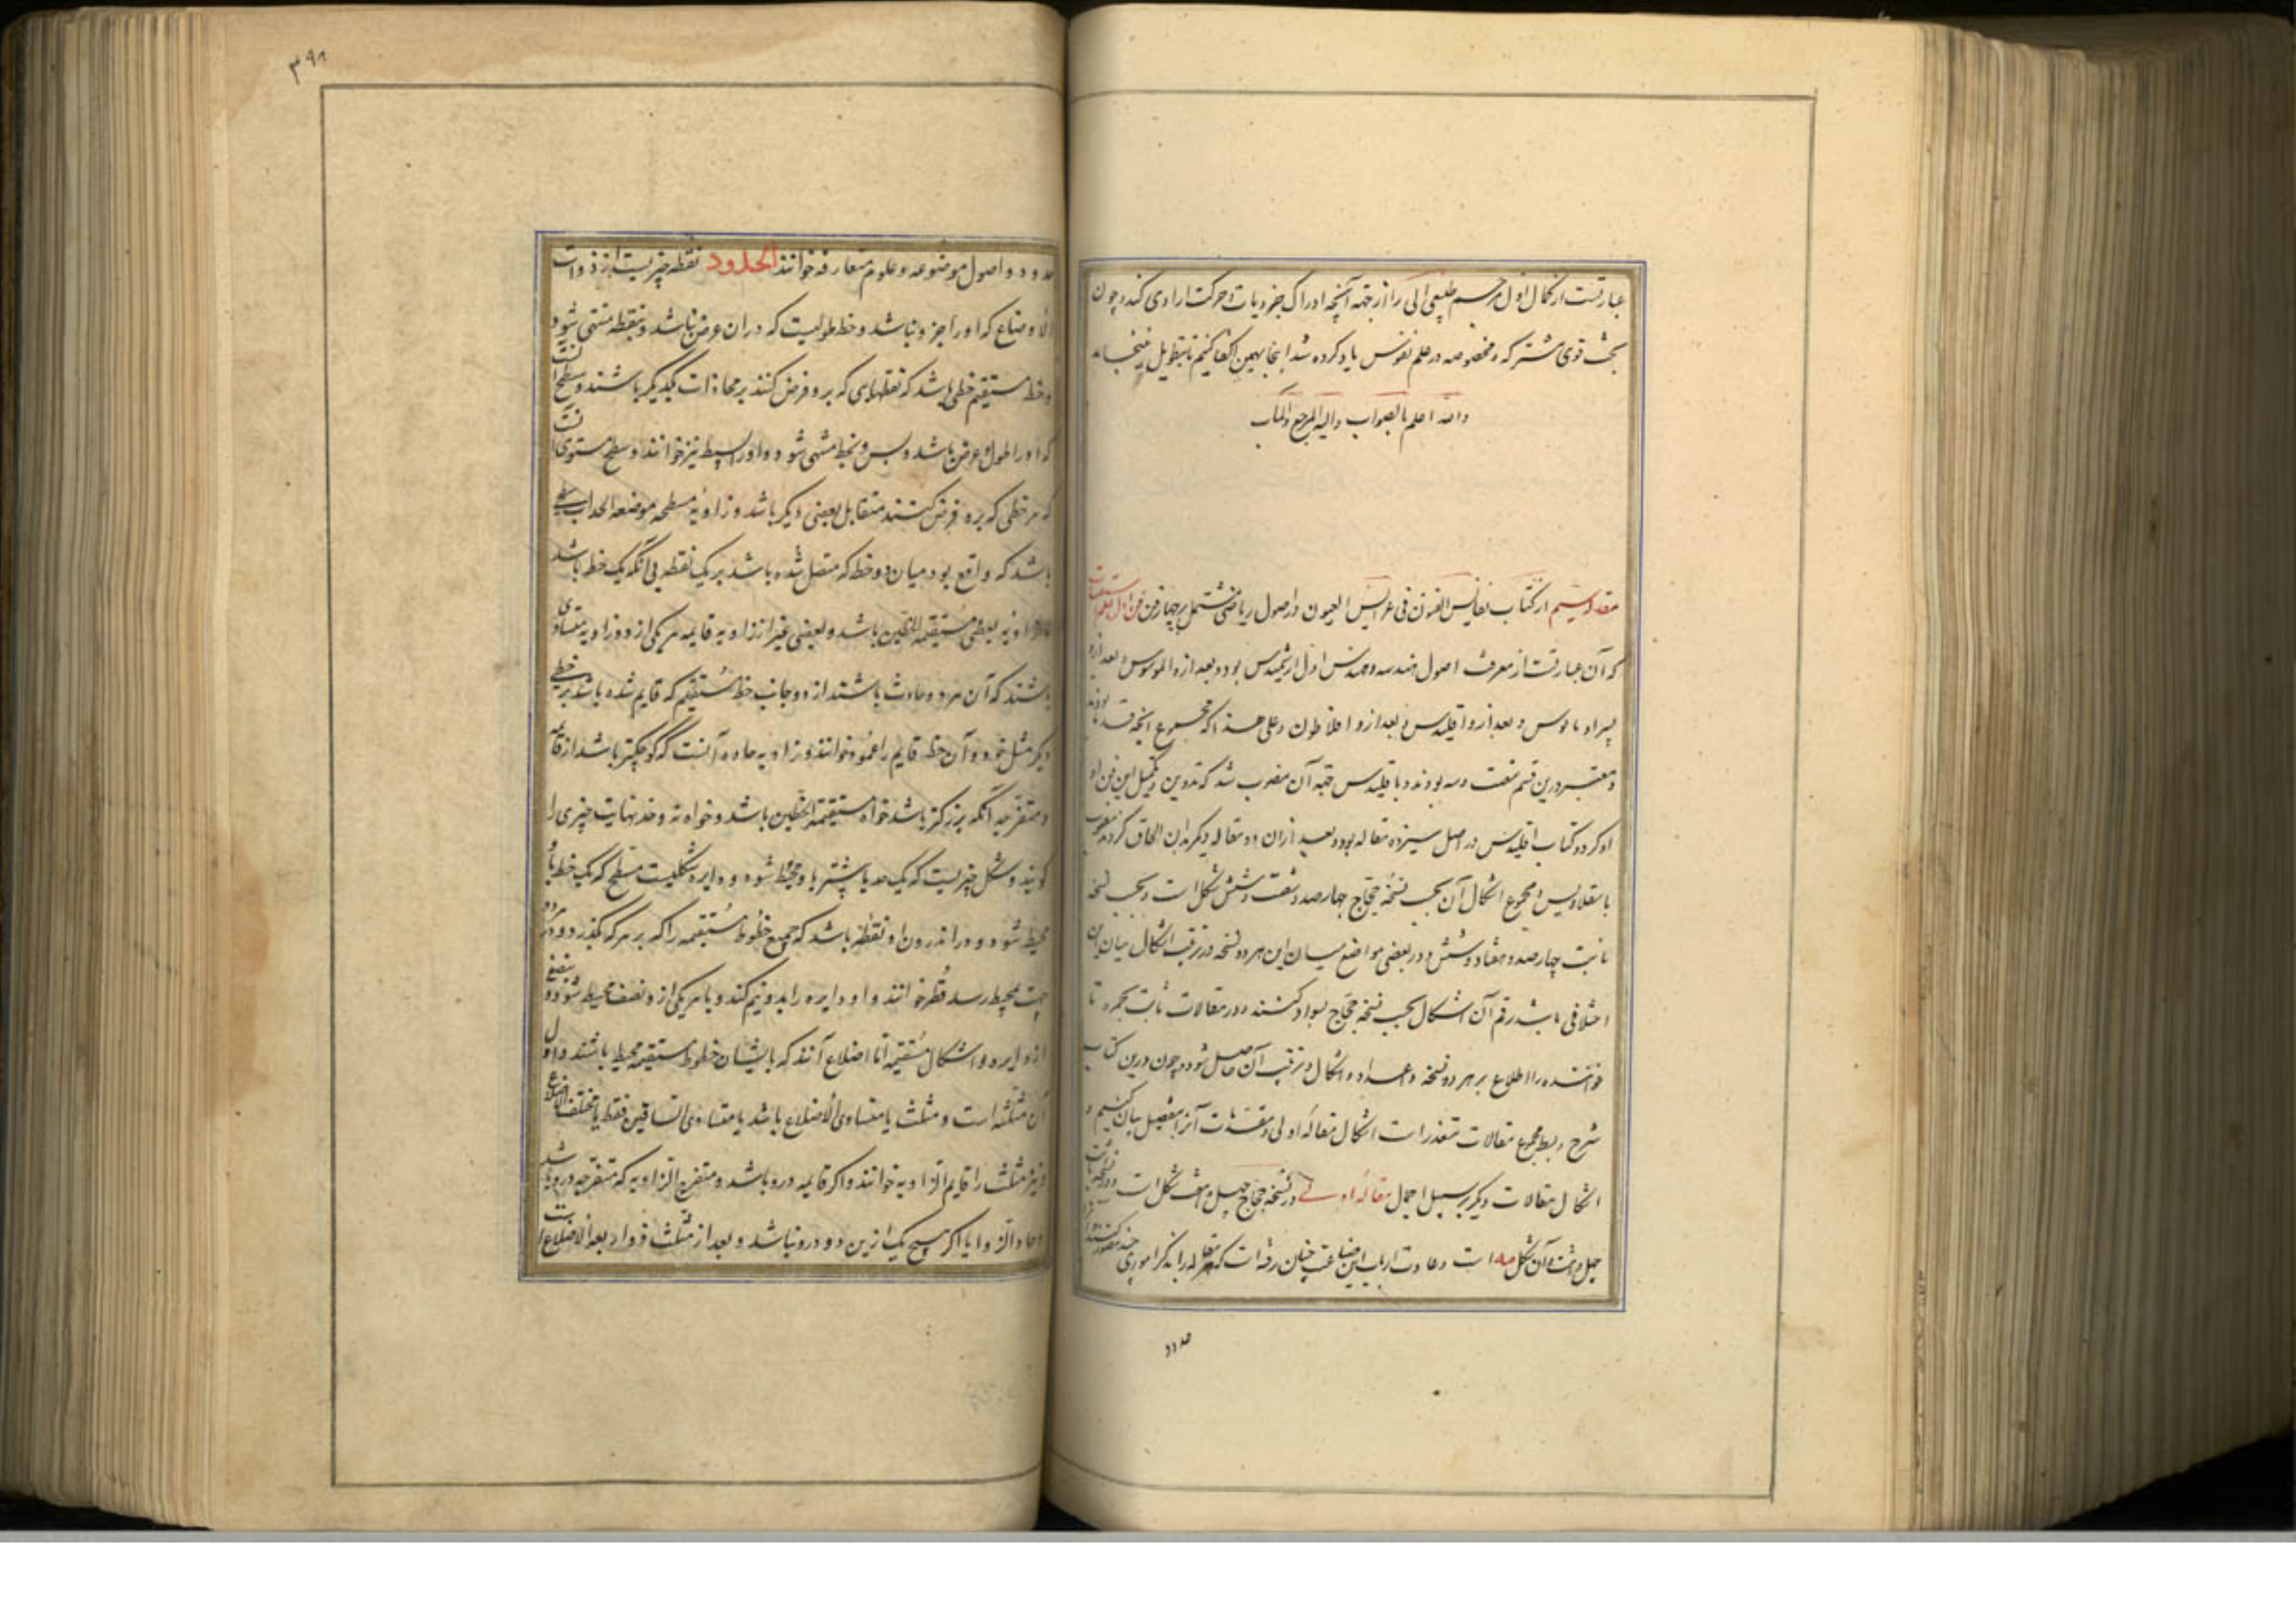 عبارتست از کمال اول مر جسم طبیعی آلی را از جهه آنچه ادراک جزویات و حرکت ارادی کند و چون
بحث قوی مشترکه و مخصوصه در علم نفوس یاد کرده شد اینجا بهمین اکتفا کنیم تا بتطویل نینجامد
والله اعلم بالصواب والیه المرجع والمآب
مقاله سیم از کتاب نفایس الفنون فی عرایس العیون در اصول ریاضی مشتمل بر چهار فن فن اول علم
که آن عبارتست از معرفت اصول هندسه و مهندس اول ارشمیدس بود و بعد ازو المونوس و بعد ازو
پسر او بالوس و بعد ازو اقلیدس و بعد ازو افلاطون و علی هذا که مجموع آنچه قدما
و معتبر درین قسم هفت و سه بودند و باقلیدس جهة آن منسوب شد که تدوین و تکمیل این فن او
او کرد و کتاب اقلیدس در اصل سیزده مقاله بود و بعد ازان دو مقاله دیگر بدان الحاق کردند منسوب
بابسقلاوس و مجموع اشکال آن بحسب نسخه حجاج چهارصد و شصت و شش شکل است و بحسب نسخه
ثابت چهارصد و هفتاد و شش و در بعضی مواضع میان این هر دو نسخه در ترتیب اشکال میان ایشان
اختلافی باشد رقم آن اشکال بحسب نسخه حجاج بسواد کشند و در مقالات ثابت بحمره تا
خواننده را اطلاع بر هر دو نسخه و اعداد و اشکال و ترتیب آن حاصل شود و چون درین کتاب
شرح و بسط مجموع مقالات متعذر است اشکال مقاله اولی و مقدمات آنرا بتفصیل بیان کنیم و
اشکال مقالات دیگر بر سبیل اجمال مقاله اولی در نسخه حجاج چهل و هفت شکل است و در نسخه ثابت
چهل و هشت و آن شکل مه است و عادت ارباب این صناعت چنان رفته است که هر مقاله را بذکر اموری چند
حدود
۳۹۸
حدود و اصول موضوعه و علوم متعارفه خوانند الحدود نقطه چیزیست از ذوات
الاوضاع که او را جزو نباشد و خط طولیست که دران عرض نباشد و بنقطه منتهی شود
و خط مستقیم خطی باشد که نقطهایی که برو فرض کنند بر محاذات یکدیگر باشند و سطح آنست
که او را طول و عرض باشد و بس و بخط منتهی شود و او را بسیط نیز خوانند و سطح مستوی آنست
که هر خطی که برو فرض کنند متقابل بعضی دیگر باشد و زاویه مسطحه موضعه الحداب سطحی
باشد که واقع بود میان دو خط که متصل شده باشد بر یک نقطه بی آنکه یک خط باشد
و زاویه بعضی مستقیمة الخطین باشد و بعضی غیر از زاویه قایمه هر یکی از دو زاویه متساوی
باشند که آن هر دو حادث باشند از دو جانب خط مستقیم که قایم شده باشد بر خطی
دیگر مثل خود و آن خط قایم را عمود خوانند و زاویه حاده آنست که کوچکتر باشد از قایمه
و منفرجه آنکه بزرگتر باشد خواه مستقیمة الخطین باشد و خواه نه و حد نهایت چیزی را
گویند و شکل چیزیست که یک حد یا بیشتر باو محیط شود و دایره شکلیست مسطح که یک خط باو
محیط شود و در اندرون او نقطه باشد که جمیع خطوط مستقیمه را که بر مرکز گذرد و در هر دو
جهت بمحیط رسد قطر خوانند و او دایره را بدو نیم کند و با هر یکی از دو نصف محیط شود و بنصفی
از دایره و اشکال مستقیمة الاضلاع آنند که بایشان خطوط مستقیمه محیط باشند و اول
آن مثلثه است و مثلث یا متساوی الاضلاع باشد یا متساوی الساقین فقط یا مختلف الاضلاع
و نیز مثلث را قایم الزاویه خوانند و اگر قایمه درو باشد و منفرج الزاویه که منفرجه درو باشد
و حاد الزوایا اگر هیچ یک ازین دو درو نباشد و بعد از مثلث ذو اربعة الاضلاع است